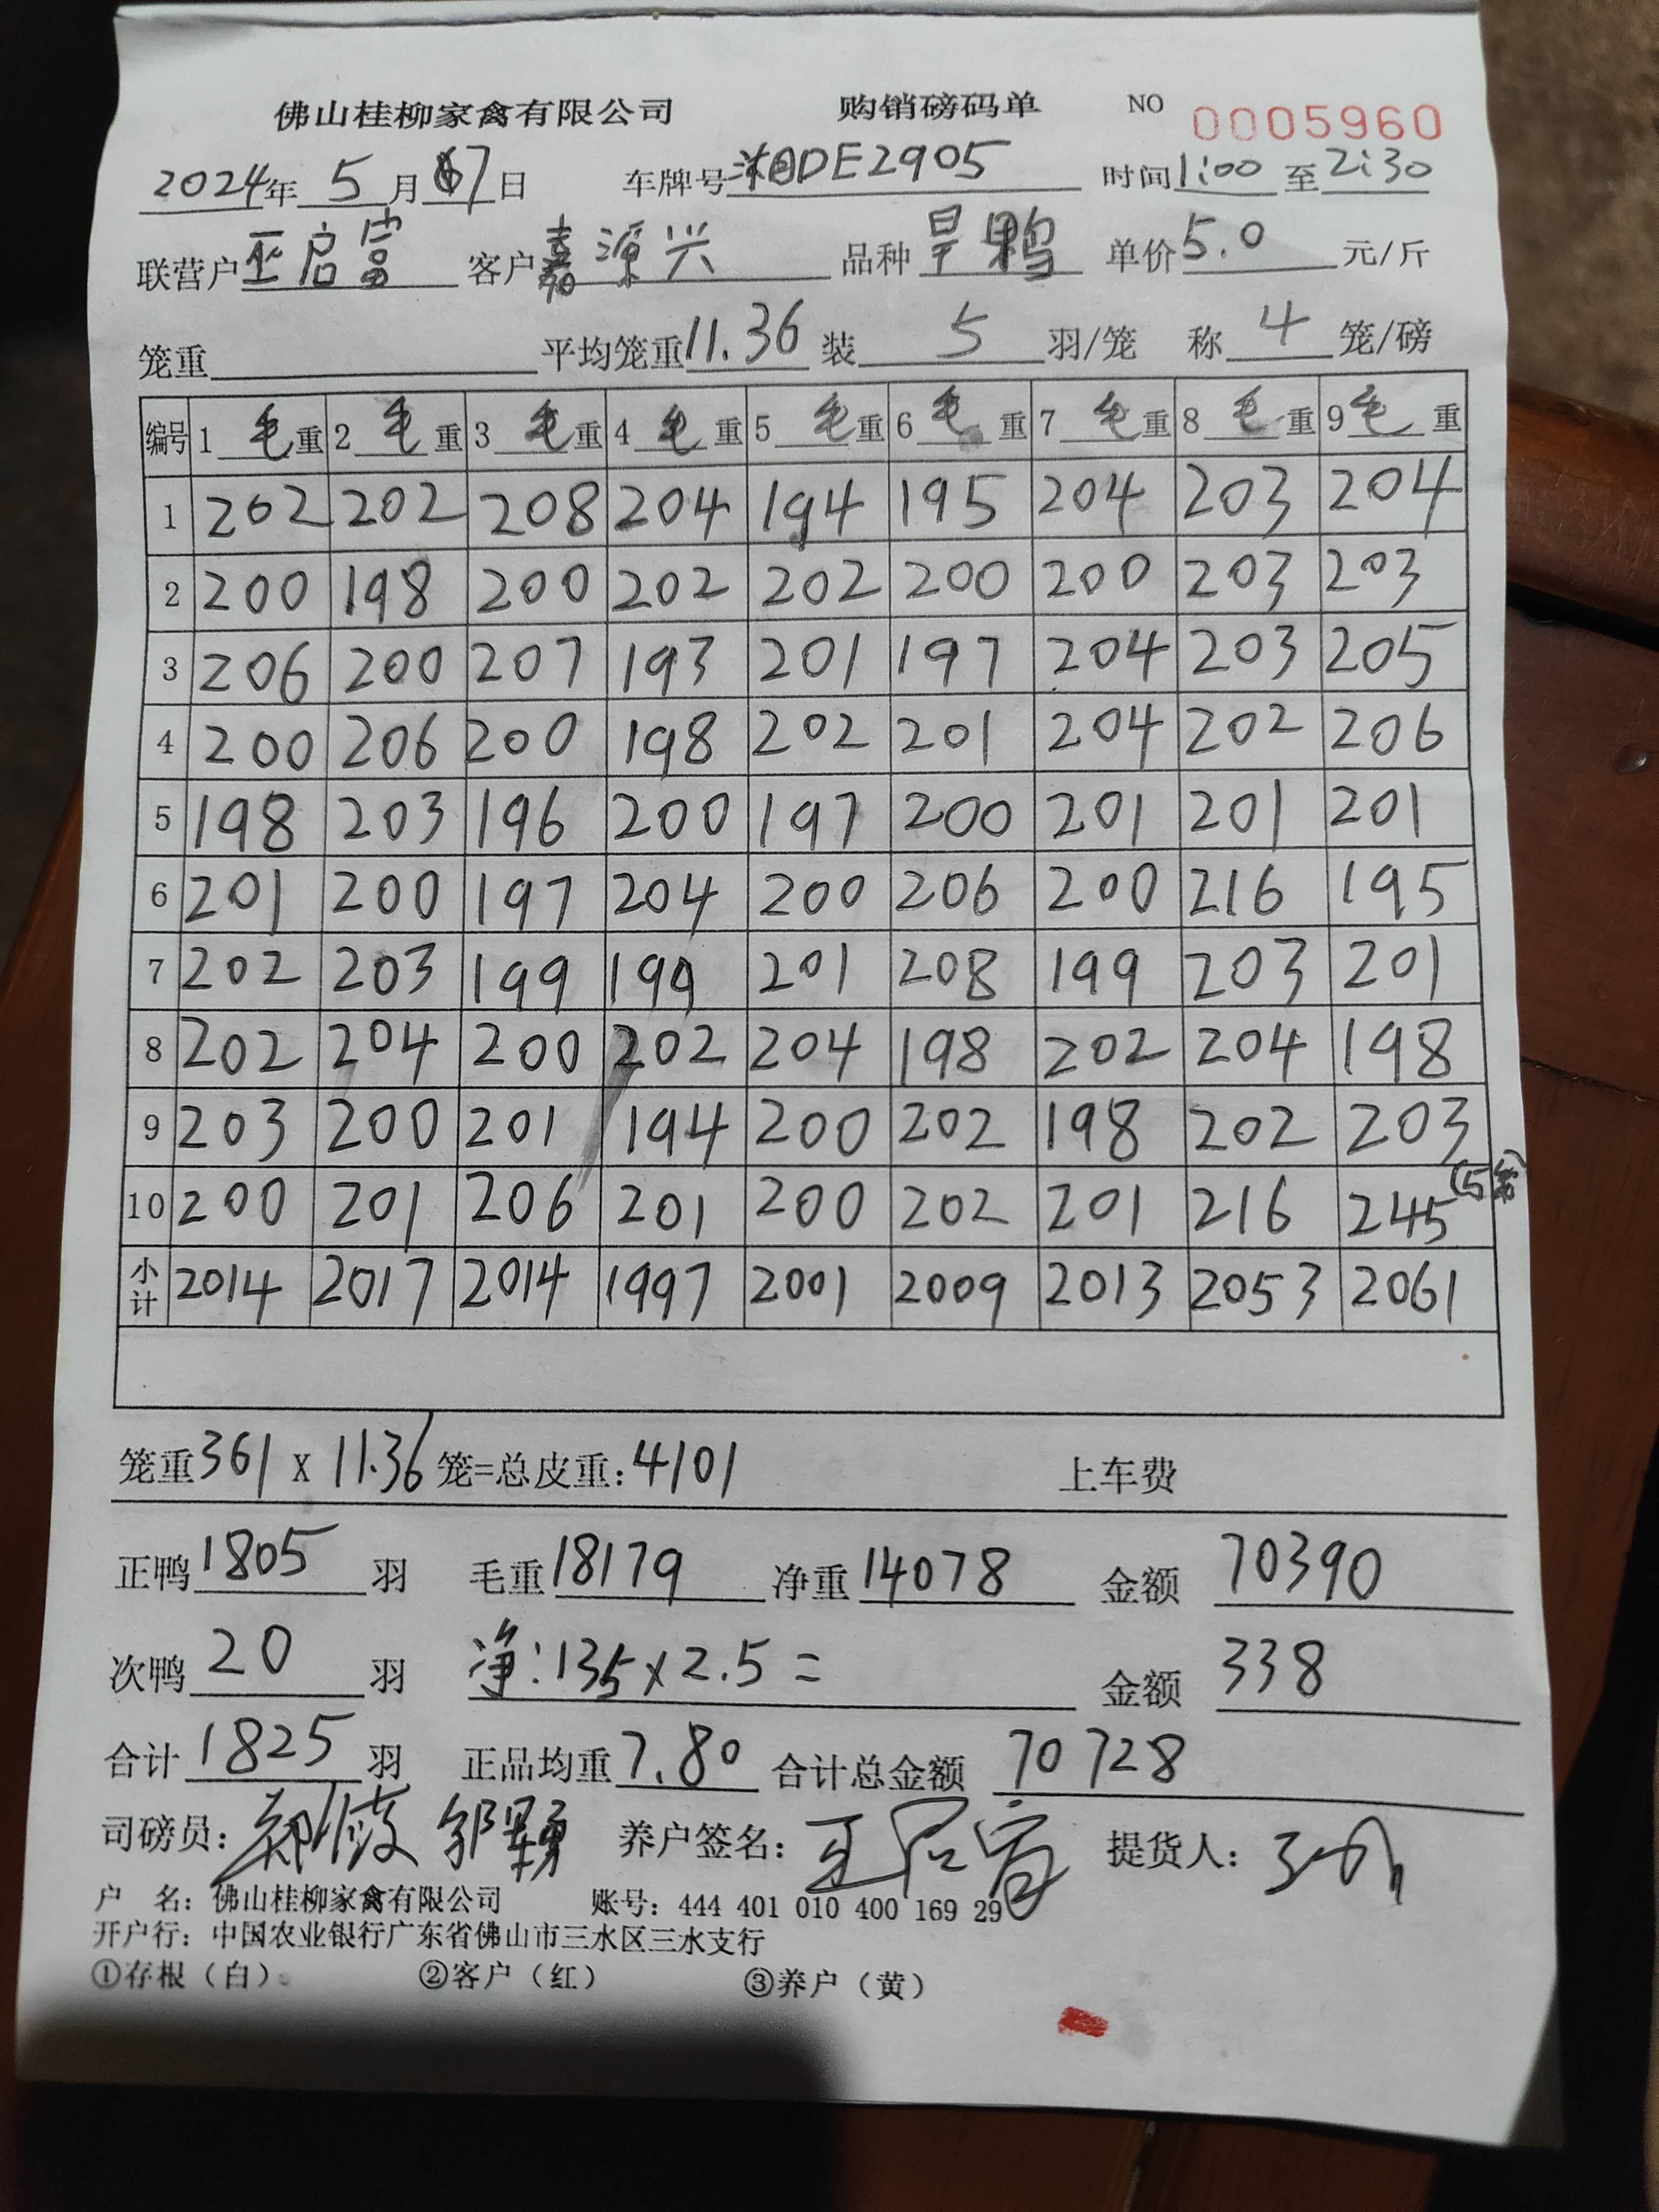 佛山桂柳家禽有限公司 购销磅码单 NO 0005960
2024年 5 月 7 日 车牌号 湘DE2905 时间 1:00 至 2:30
联营户 巫启富 客户 嘉源兴 品种 旱鸭 单价 5.0 元/斤
笼重 平均笼重 11.36 装 5 羽/笼 称 4 笼/磅
编号 1 毛 重 2 毛 重 3 毛 重 4 毛 重 5 毛 重 6 毛 重 7 毛 重 8 毛 重 9 毛 重
1 202 202 208 204 194 195 204 203 204
2 200 198 200 202 202 200 200 203 203
3 206 200 207 193 201 197 204 203 205
4 200 206 200 198 202 201 204 202 206
5 198 203 196 200 197 200 201 201 201
6 201 200 197 204 200 206 200 216 195
7 202 203 199 199 201 208 199 203 201
8 202 204 200 202 204 198 202 204 198
9 203 200 201 194 200 202 198 202 203
10 200 201 206 201 200 202 201 216 245 (5笼)
小计 2014 2017 2014 1997 2001 2009 2013 2053 2061
笼重 361 x 11.36 笼=总皮重: 4101 上车费
正鸭 1805 羽 毛重 18179 净重 14078 金额 70390
次鸭 20 羽 净:135x2.5= 金额 338
合计 1825 羽 正品均重 7.80 合计总金额 70728
司磅员: 养户签名: 巫启富 提货人:
户 名: 佛山桂柳家禽有限公司 账号: 444 401 010 400 169 29
开户行: 中国农业银行广东省佛山市三水区三水支行
①存根（白） ②客户（红） ③养户（黄）